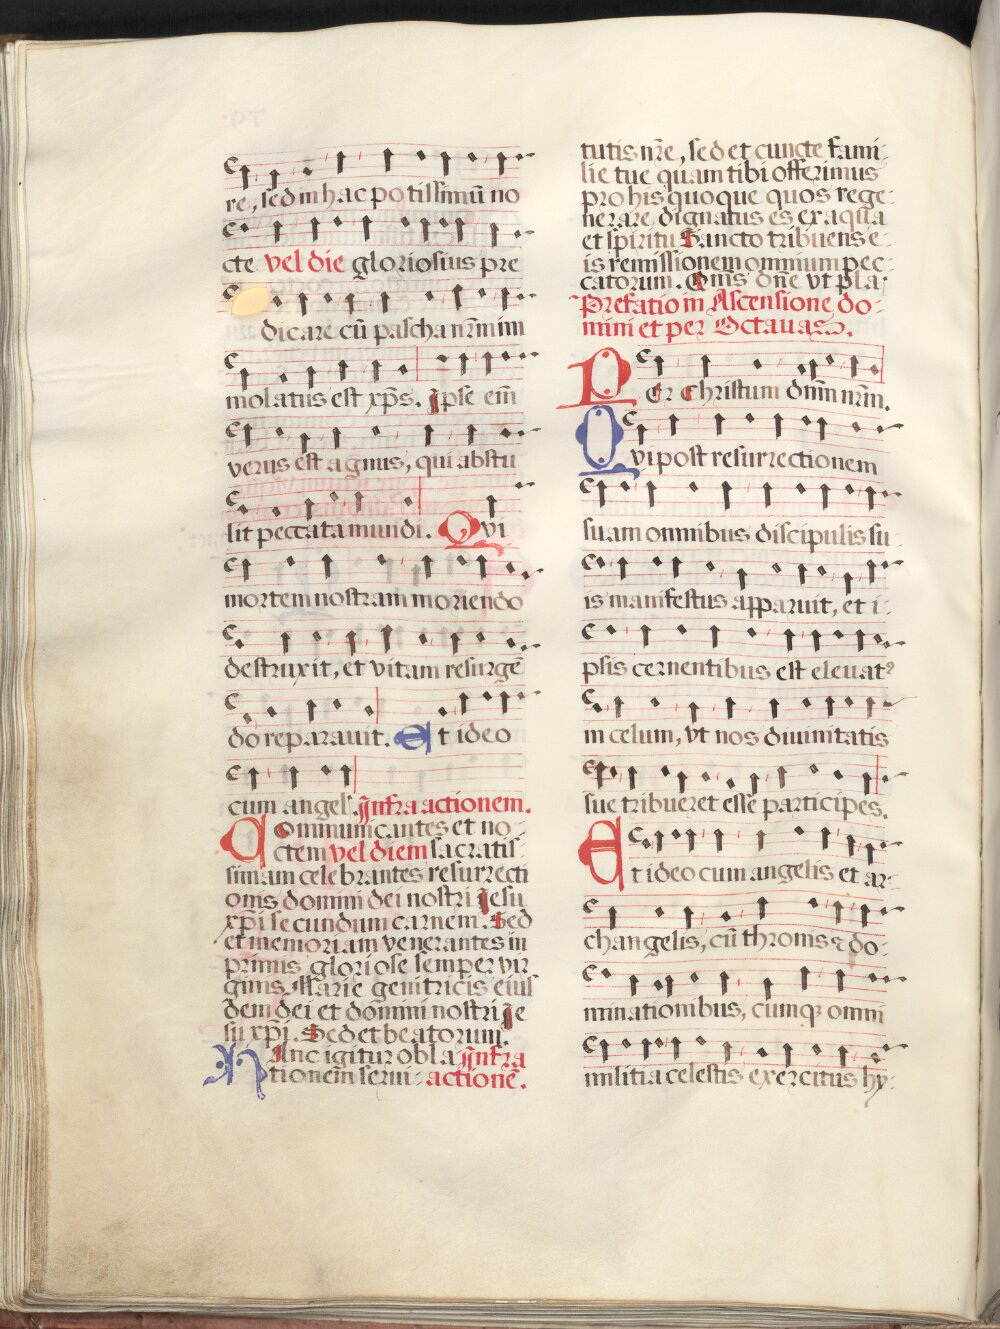 re, sed in hac potissimū no
cte vel die gloriosius pre
dicare cū pascha nr̄m im
molatus est xp̄s. Ipse em̄
verus est agnus, qui abstu
lit peccata mundi. Qvi
mortem nostram moriendo
destruxit, et vitam resurgē
do reparauit. Et ideo
cum angel'. Infra actionem.
Communicantes et no-
ctem vel diem sacratis-
simam celebrantes resurrecti
onis domini dei nostri Iesu
xp̄i secundum carnem. Sed
et memoriam venerantes in
primis gloriose semper vir
ginis Marie genitricis eius
dem dei et domini nostri Ie
su xp̄i. Sed et beatorum.
Hanc igitur obla Infra
tionem serui- actionē.
tutis nr̄e, sed et cuncte fami-
lie tue quam tibi offerimus
pro his quoque quos rege-
nerare dignatus es ex aqua
et spiritu Sancto tribuens e-
is remissionem omnium pec-
catorum. Qm̄s dn̄e vt pla-
Prefatio in Ascensione do-
mini et per Octauas.
PEr Christum dn̄m nr̄m.
Qvi post resurrectionem
suam omnibus discipulis su-
is manifestus apparuit, et i-
psis cernentibus est eleuatꝰ
in celum, vt nos diuinitatis
sue tribueret esse participes.
Et ideo cum angelis et ar-
changelis, cū thronis & do-
minationibus, cumqꝫ omni
militia celestis exercitus hy-